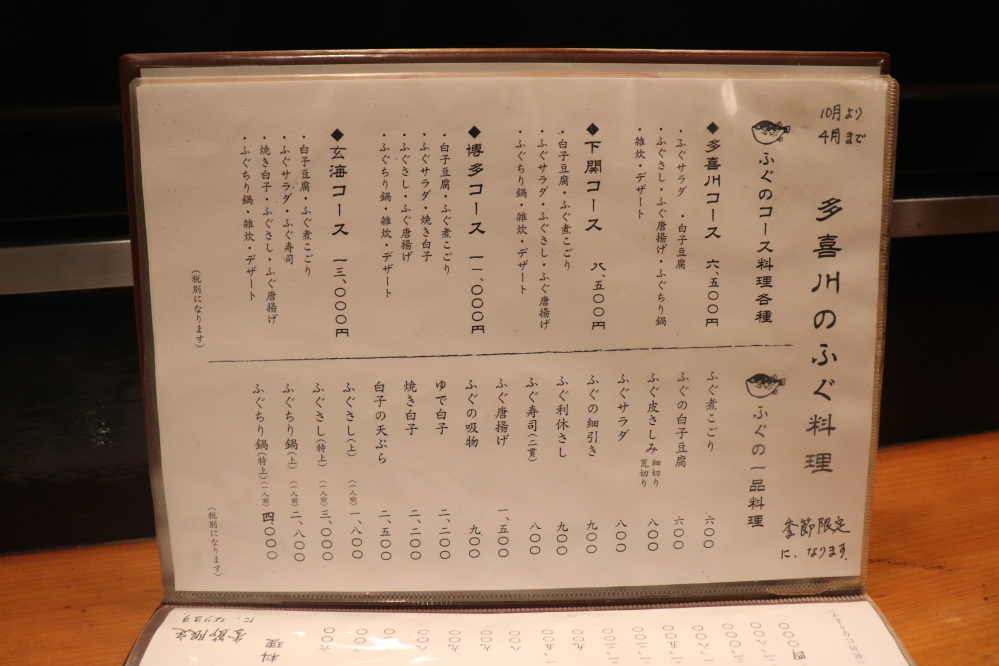 10月より
4月まで
多喜川のふぐ料理
季節限定
に、なります。
ふぐのコース料理各種
◆多喜川コース 六、五〇〇円
・ふぐサラダ ・白子豆腐
・ふぐさし・ふぐ唐揚げ・ふぐちり鍋
・雑炊・デザート
◆下関コース 八、五〇〇円
・白子豆腐・ふぐ煮こごり
・ふぐサラダ・ふぐさし・ふぐ唐揚げ
・ふぐちり鍋・雑炊・デザート
◆博多コース 一一、〇〇〇円
・白子豆腐・ふぐ煮こごり
・ふぐサラダ・焼き白子
・ふぐさし・ふぐ唐揚げ
・ふぐちり鍋・雑炊・デザート
◆玄海コース 一三、〇〇〇円
・白子豆腐・ふぐ煮こごり
・ふぐサラダ・ふぐ寿司
・焼き白子・ふぐさし・ふぐ唐揚げ
・ふぐちり鍋・雑炊・デザート
(税別になります)
ふぐの一品料理
ふぐ煮こごり 六〇〇
ふぐの白子豆腐 六〇〇
ふぐ皮さしみ 細切り 荒切り 八〇〇
ふぐサラダ 八〇〇
ふぐの細引き 九〇〇
ふぐ利休さし 九〇〇
ふぐ寿司(二貫) 八〇〇
ふぐ唐揚げ 一、五〇〇
ふぐの吸物 九〇〇
ゆで白子 二、二〇〇
焼き白子 二、二〇〇
白子の天ぷら 二、五〇〇
ふぐさし(上) (一人前) 一、八〇〇
ふぐさし(特上) (一人前) 三、〇〇〇
ふぐちり鍋(上) (一人前) 二、八〇〇
ふぐちり鍋(特上) (一人前) 四、〇〇〇
(税別になります)
季節限定
に、なります
料理